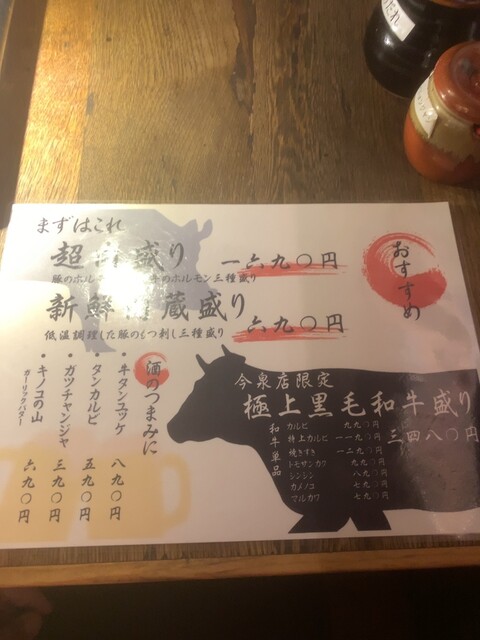 だれ
まずはこれ
おすすめ
超 盛り 一六九〇円
豚のホルモン のホルモン三種盛り
新鮮 蔵盛り 六九〇円
低温調理した豚のもつ刺し三種盛り
酒のつまみに
・牛タンユッケ 八九〇円
・タンカルビ 五九〇円
・ガツチャンジャ 三九〇円
・キノコの山 六九〇円
ガーリックバター
今泉店限定
極上黒毛和牛盛り
三四八〇円
和牛単品
カルビ 九九〇円
特上カルビ 一一九〇円
焼きすき 一二九〇円
トモサンカク 九九〇円
シンシン 八九〇円
カメノコ 七九〇円
マルカワ 七九〇円